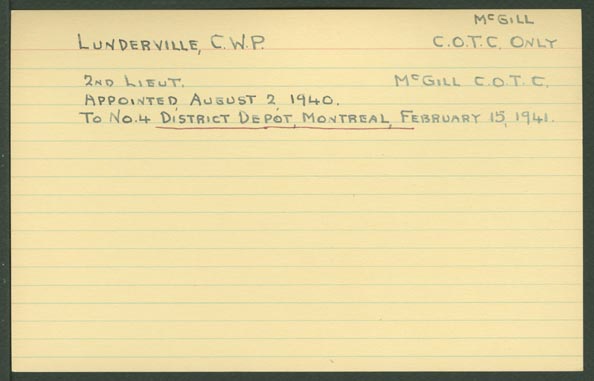 McGILL
LUNDERVILLE, C.W.P. C.O.T.C. ONLY
2ND LIEUT. McGILL C.O.T.C.
APPOINTED, AUGUST 2, 1940.
TO NO.4 DISTRICT DEPOT, MONTREAL, FEBRUARY 15, 1941.